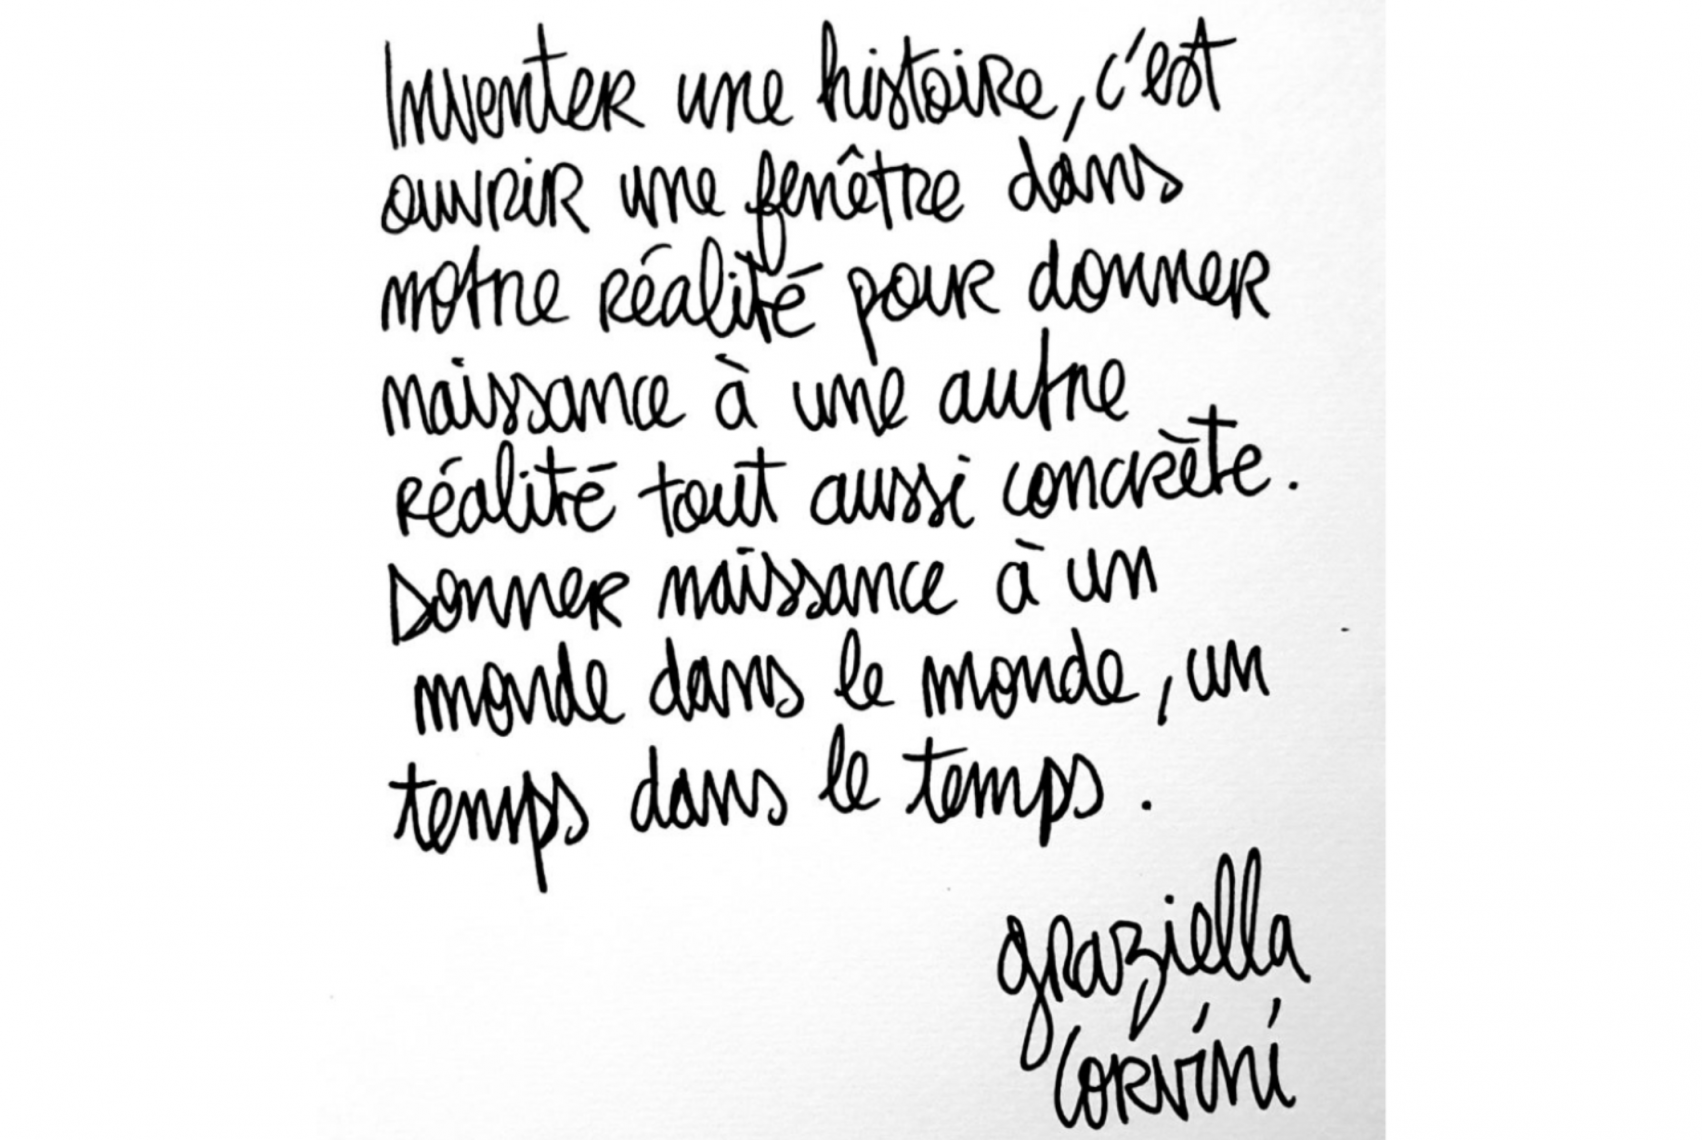 Inventer une histoire, c'est
ouvrir une fenêtre dans
notre réalité pour donner
naissance à une autre
réalité tout aussi concrète.
Donner naissance à un
monde dans le monde, un
temps dans le temps.
graziella
Corvini